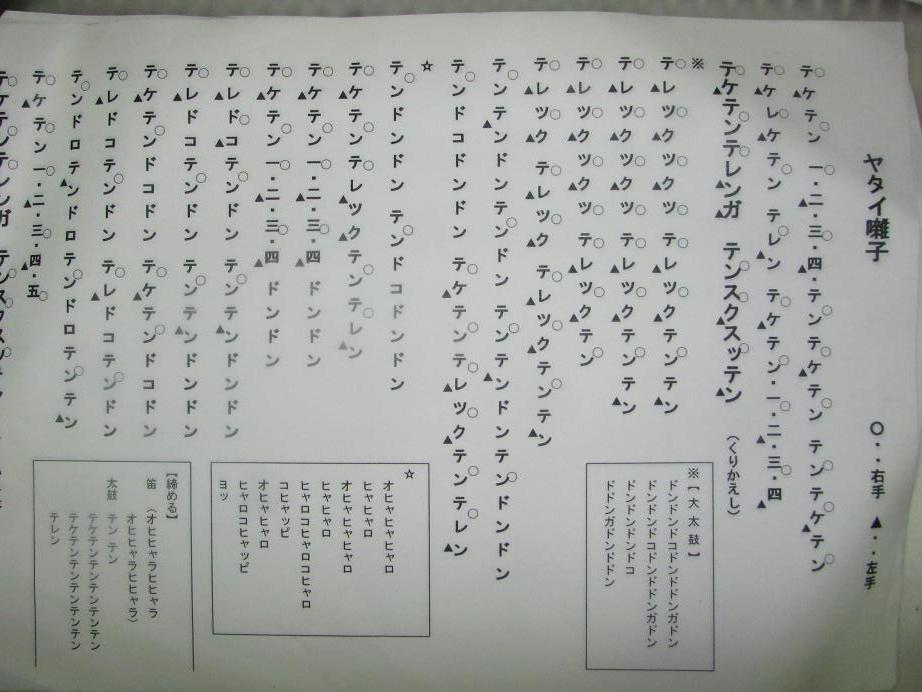 ヤタイ囃子
○・・右手 ▲・・左手
テケテン 一・二・三・四・テンテケテン テンテケテン
テケレケテン テレン テケテン・一・二・三・四
テケテンテレンガ テンスクスッテン (くりかえし)
※
テレツクツクツ テレツクテンテン
テレツクツクツ テレツクテンテン
テレツクツクツ テレツクテン
テレツク テレツク テレツクテンテン
テンテンドンテンドン テンテンドンテンドンドン
テンドコドンドン テケテンテレックテンテレン
☆
テンドンドン テンコドンドン
テケテンテレツクテンテレン
テケテン一・二・三・四 ドンドン
テケテン一・二・三・四 ドンドン
テレドコテンドン テンテンドンドン
テレドコテンドン テンテンドンドン
テケテンドコドン テケテンドコドン
テレドコテンドン テレドコテンドン
テンドロテンドロテンドロテンテン
テケテン一・二・三・四・五
※【大太鼓】
ドンドンドコドンドドンガドン
ドンドンドコドンドドンガドン
ドンドンドンドコ
ドドンガドンドドン
☆
オヒャヒャヒャロ
ヒャヒャロ
オヒャヒャヒャロ
ヒャヒャロ
ヒャロコヒャロコヒャロ
コヒャッピ
オヒャヒャロ
ヒャロコヒャッピ
ヨッ
【締める】
笛 (オヒヒャラヒヒャラ
オヒヒャラヒヒャラ)
太鼓 テン テン
テケテンテンテンテン
テケテンテンテンテンテン
テレン